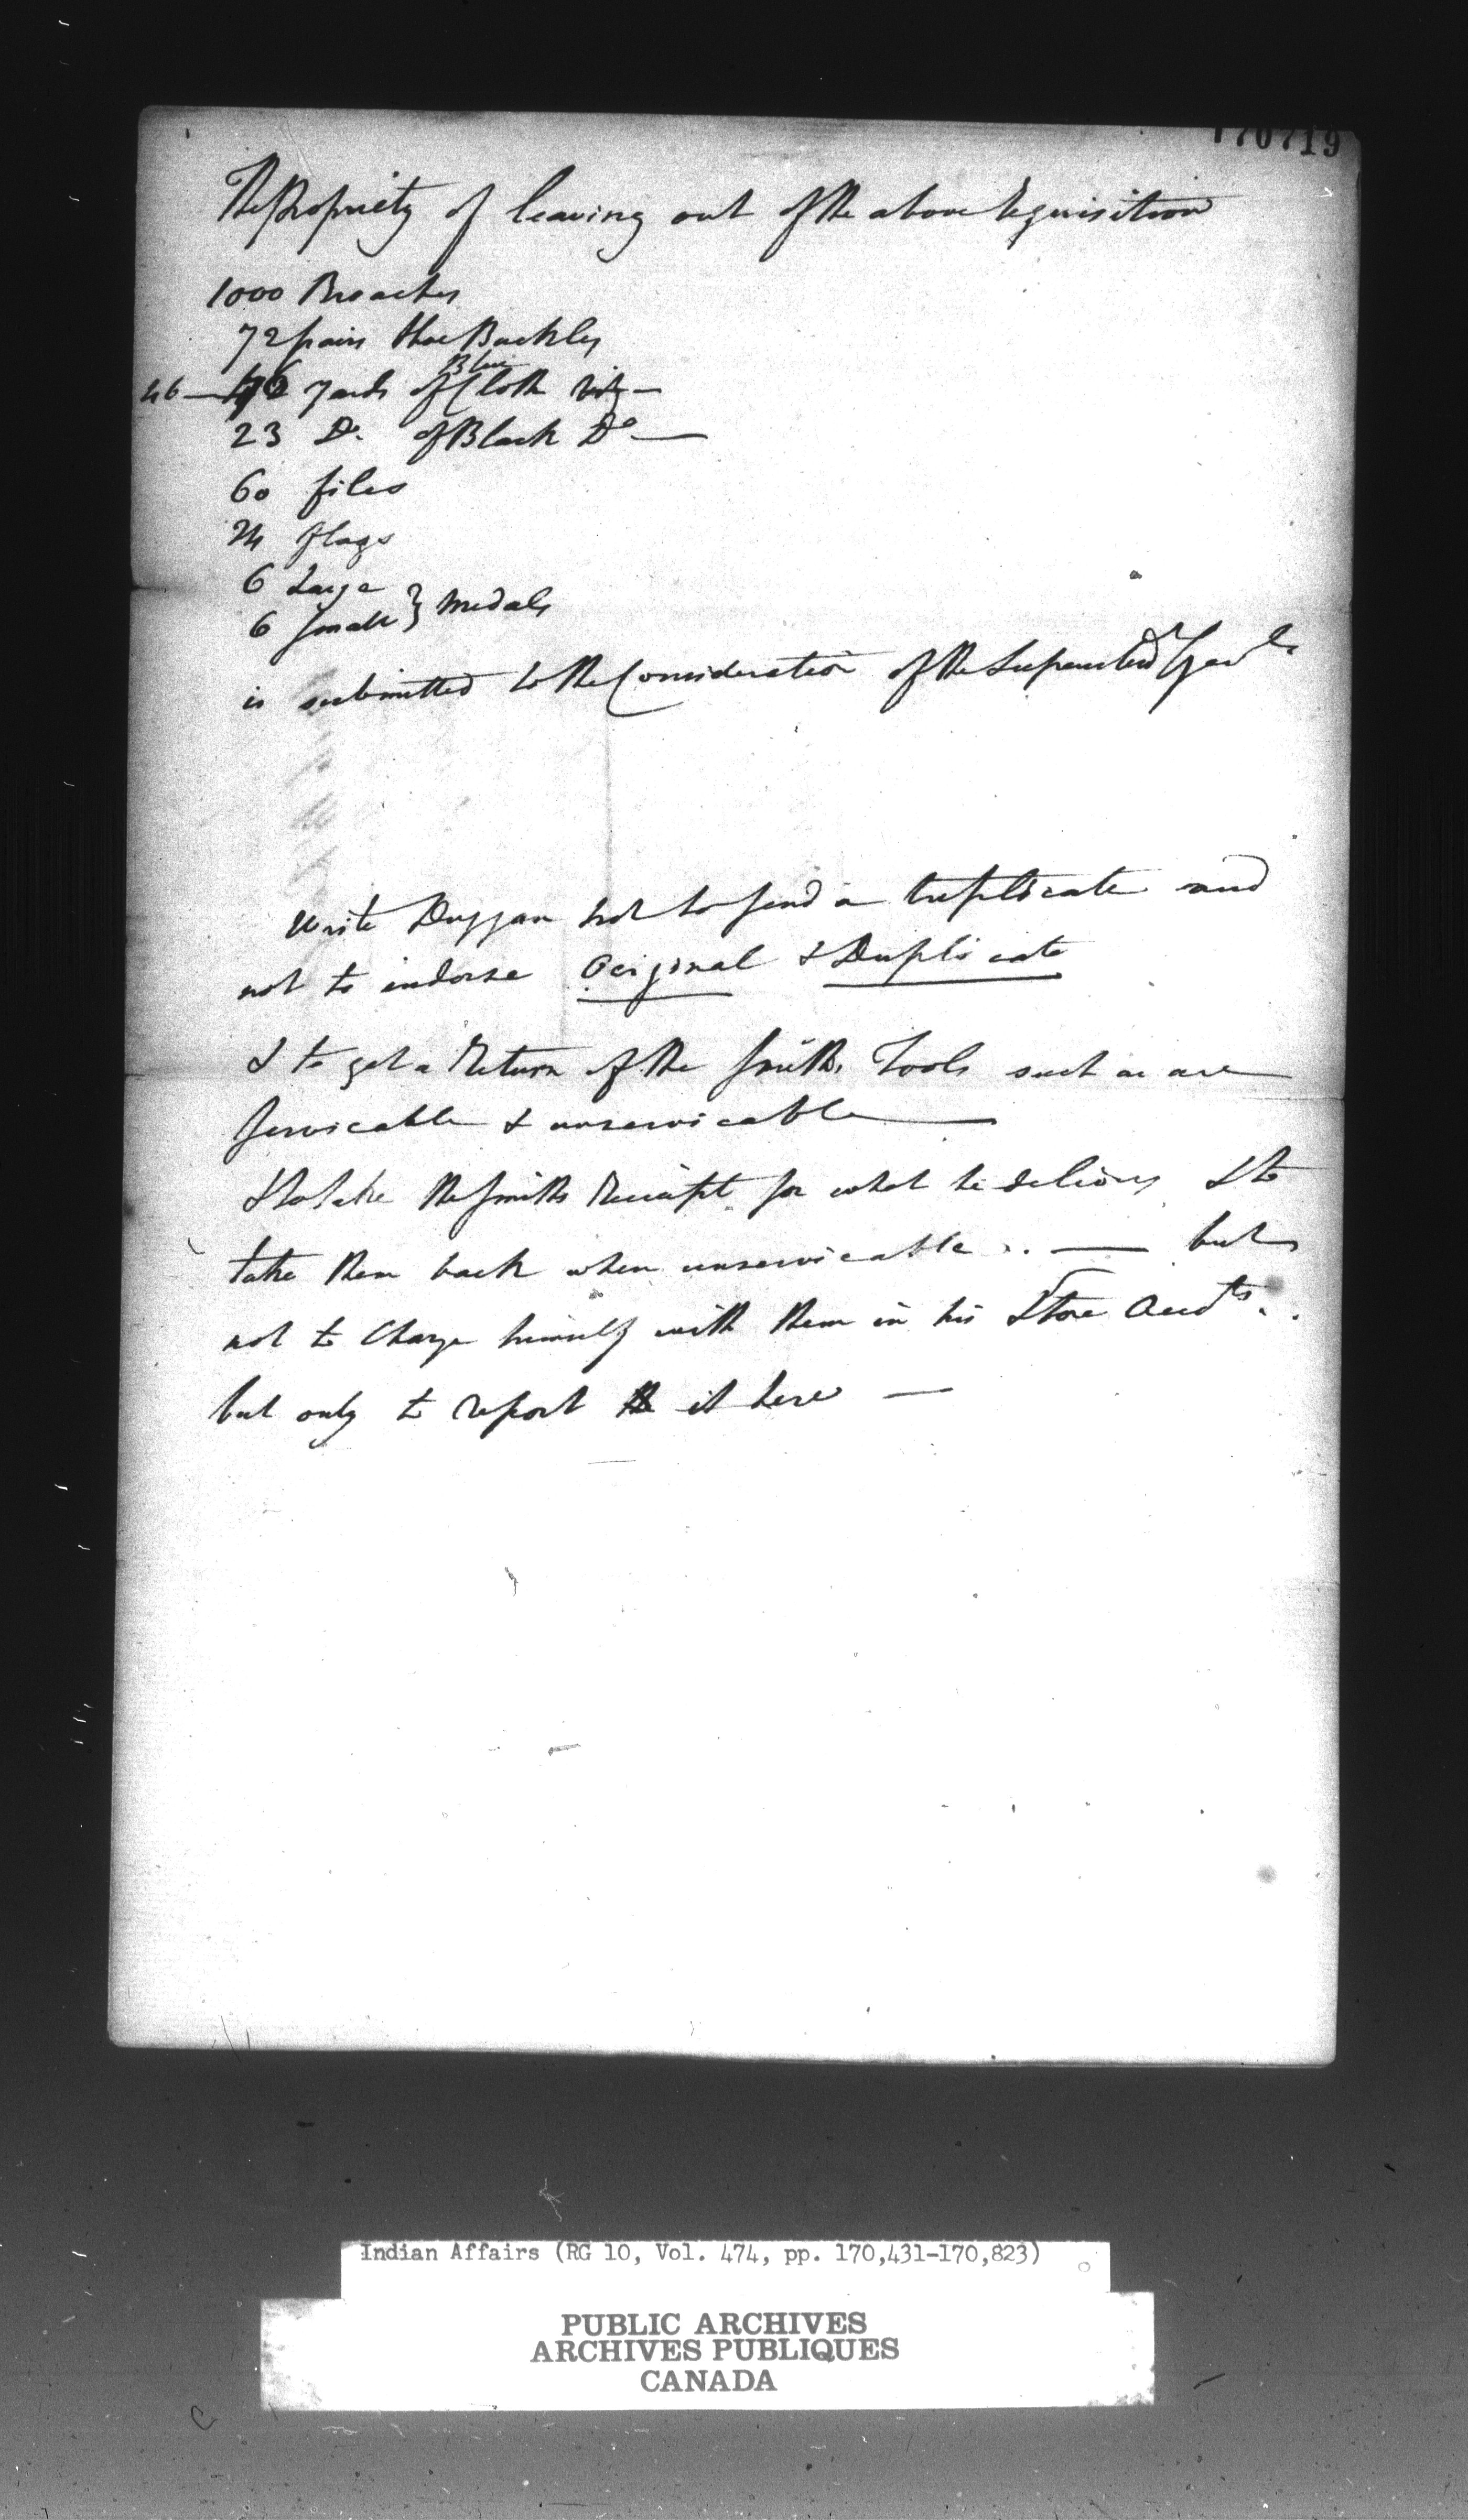 170719
The Propriety of leaving out of the above Requisition
1000 Broaches
72 pairs Shoe Buckles
46 — yards of Blue Cloth viz —
23 Do. of Black Do —
60 files
24 flags
6 Large
6 Small } Medals
is submitted to the Consideration of the Superintend Genl.
Write Duggan not to send a triplicate and
not to indorse Original & Duplicate
& to get a Return of the Smiths Tools such as are
Servicable & unservicable —
& to take the Smiths Receipt for what he delivers & to
take them back when unservicable .. — but
not to Charge himself with them in his Store Accts. .
but only to report it here —
Indian Affairs (RG 10, Vol. 474, pp. 170,431-170,823)
PUBLIC ARCHIVES
ARCHIVES PUBLIQUES
CANADA